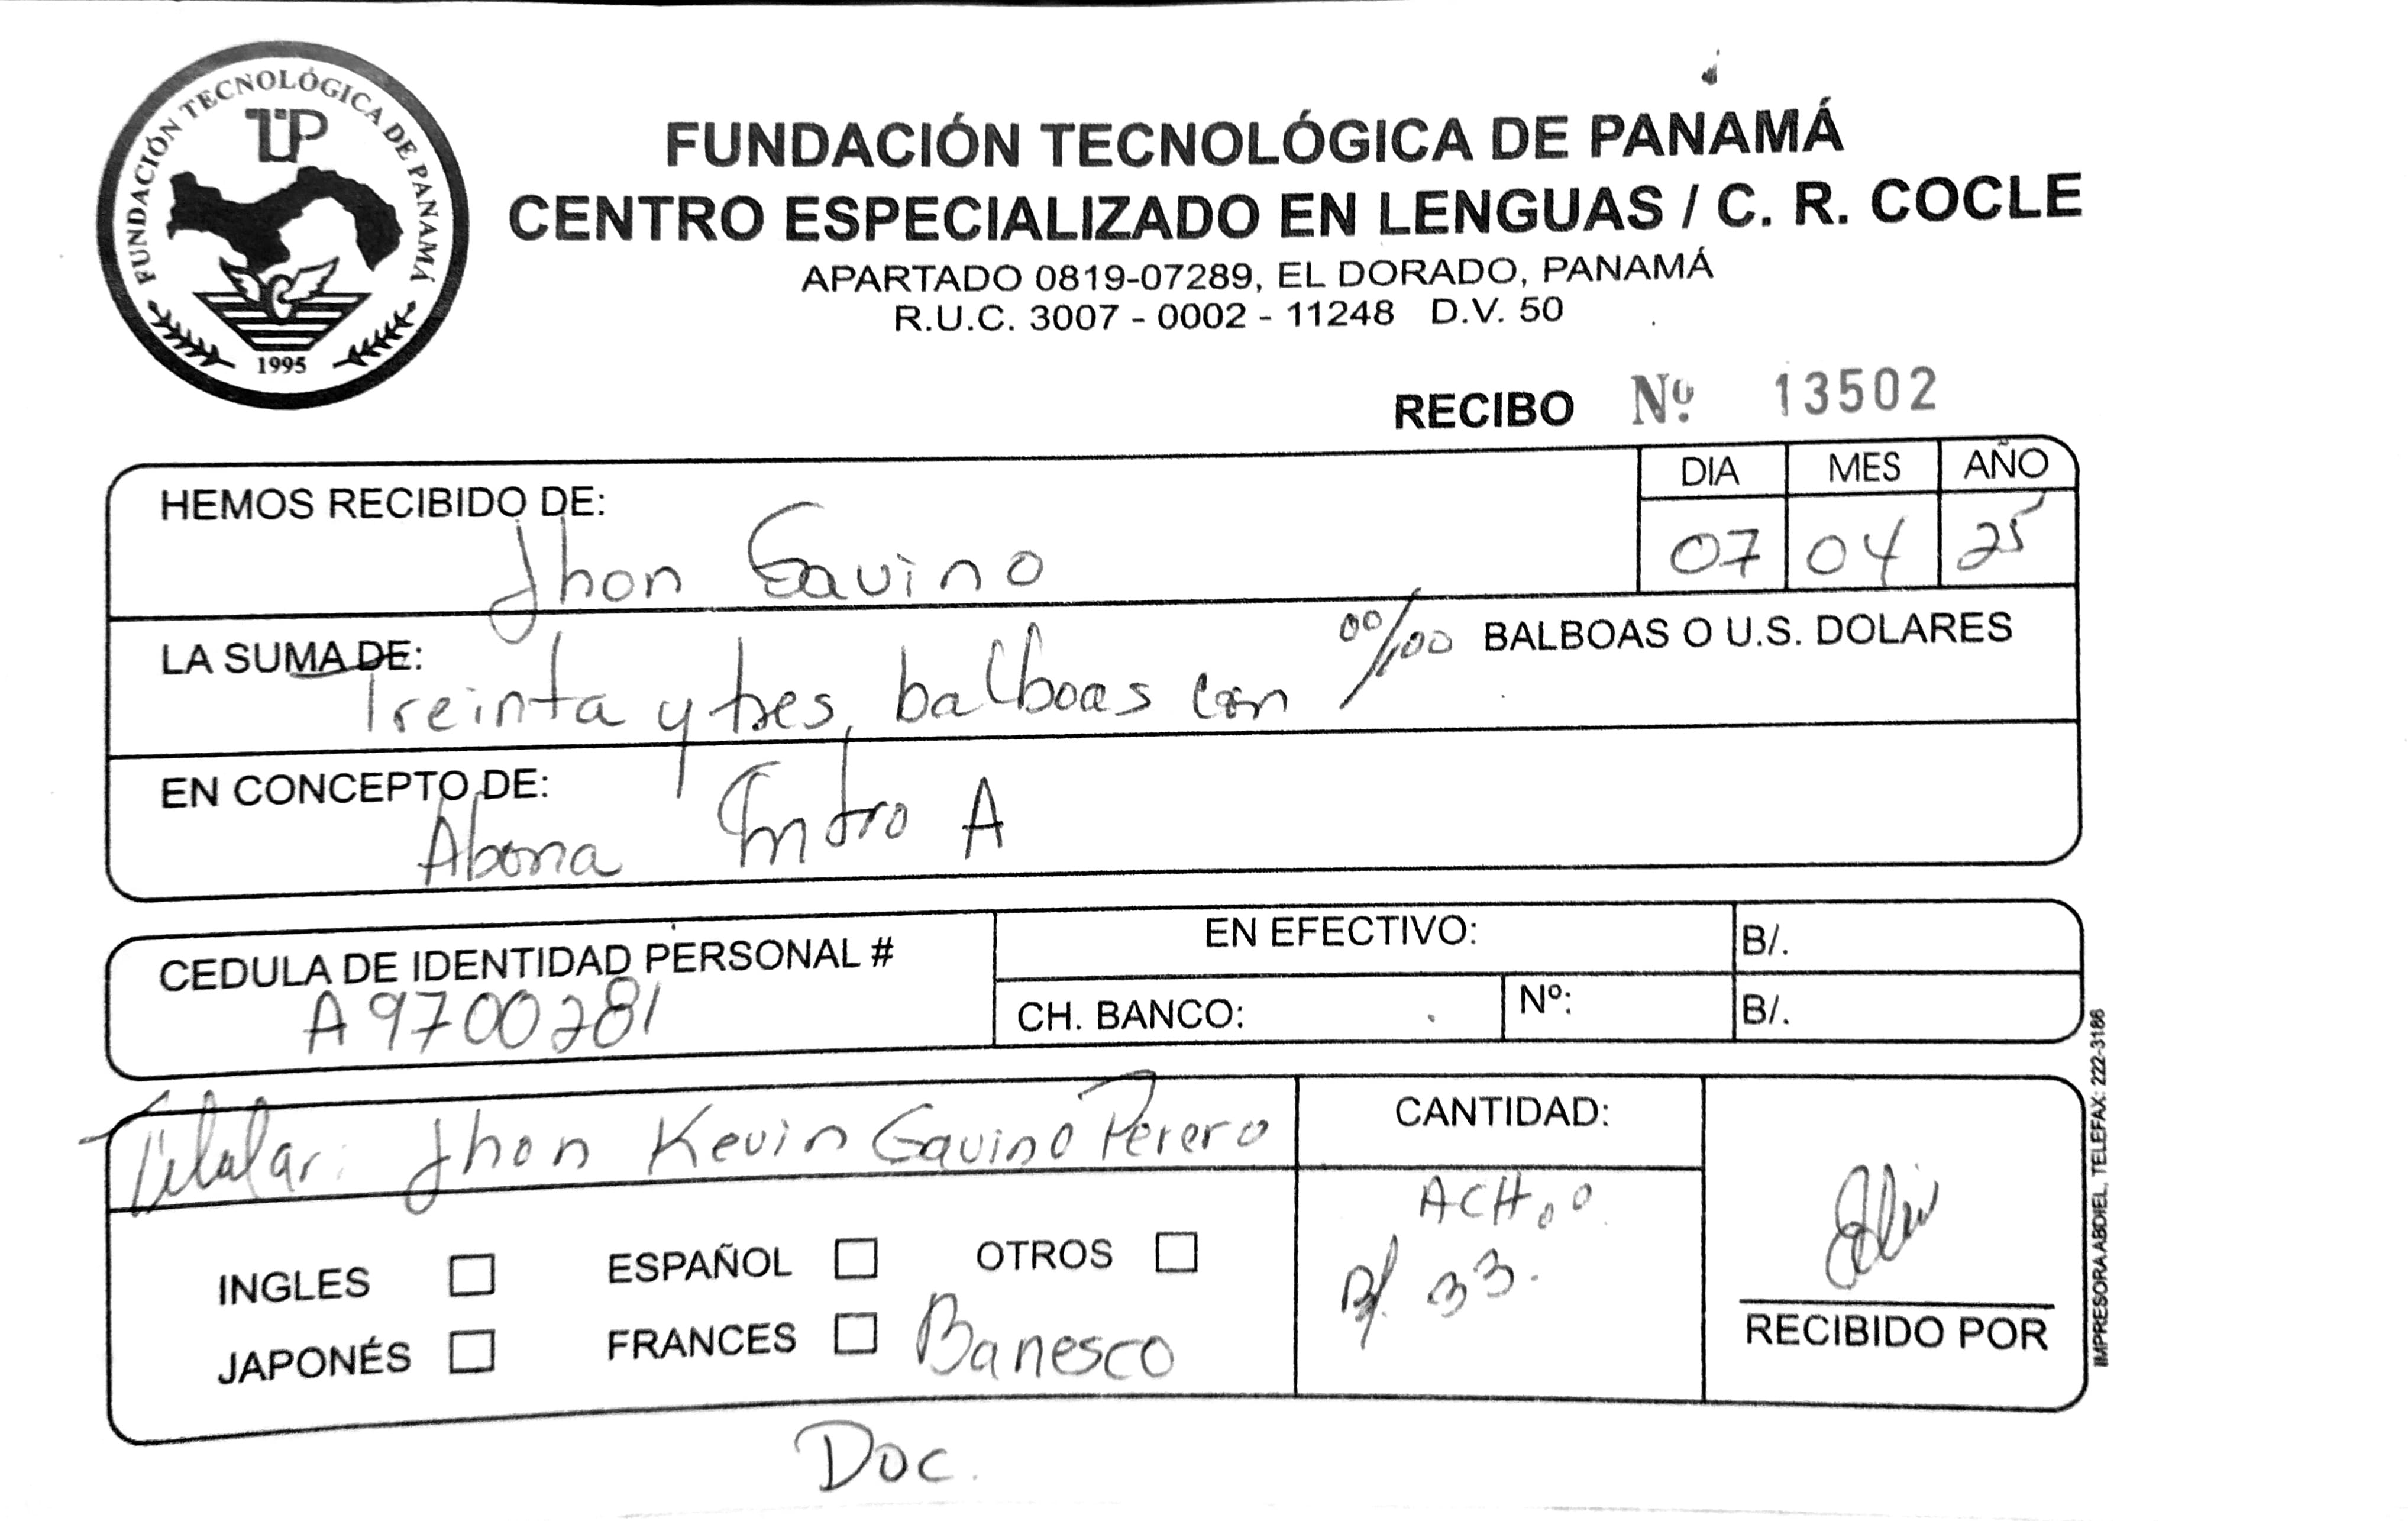 FUNDACIÓN TECNOLÓGICA DE PANAMÁ
UTP
1995
FUNDACIÓN TECNOLÓGICA DE PANAMÁ
CENTRO ESPECIALIZADO EN LENGUAS / C. R. COCLE
APARTADO 0819-07289, EL DORADO, PANAMÁ
R.U.C. 3007 - 0002 - 11248 D.V. 50
RECIBO Nº 13502
DIA MES AÑO
HEMOS RECIBIDO DE: Jhon Gavino
07 04 25
LA SUMA DE: Treinta y tres, balboas con 00/100 BALBOAS O U.S. DOLARES
EN CONCEPTO DE: Abona Intro A
CEDULA DE IDENTIDAD PERSONAL #
A9700281
EN EFECTIVO: B/.
CH. BANCO: Nº: B/.
Titular: Jhon Kevin Gavino Perero
CANTIDAD:
ACH
B/ 33.00
INGLES ESPAÑOL OTROS
JAPONÉS FRANCES Banesco
RECIBIDO POR
Doc.
IMPRESORA ABDIEL, TELEFAX: 222-3186